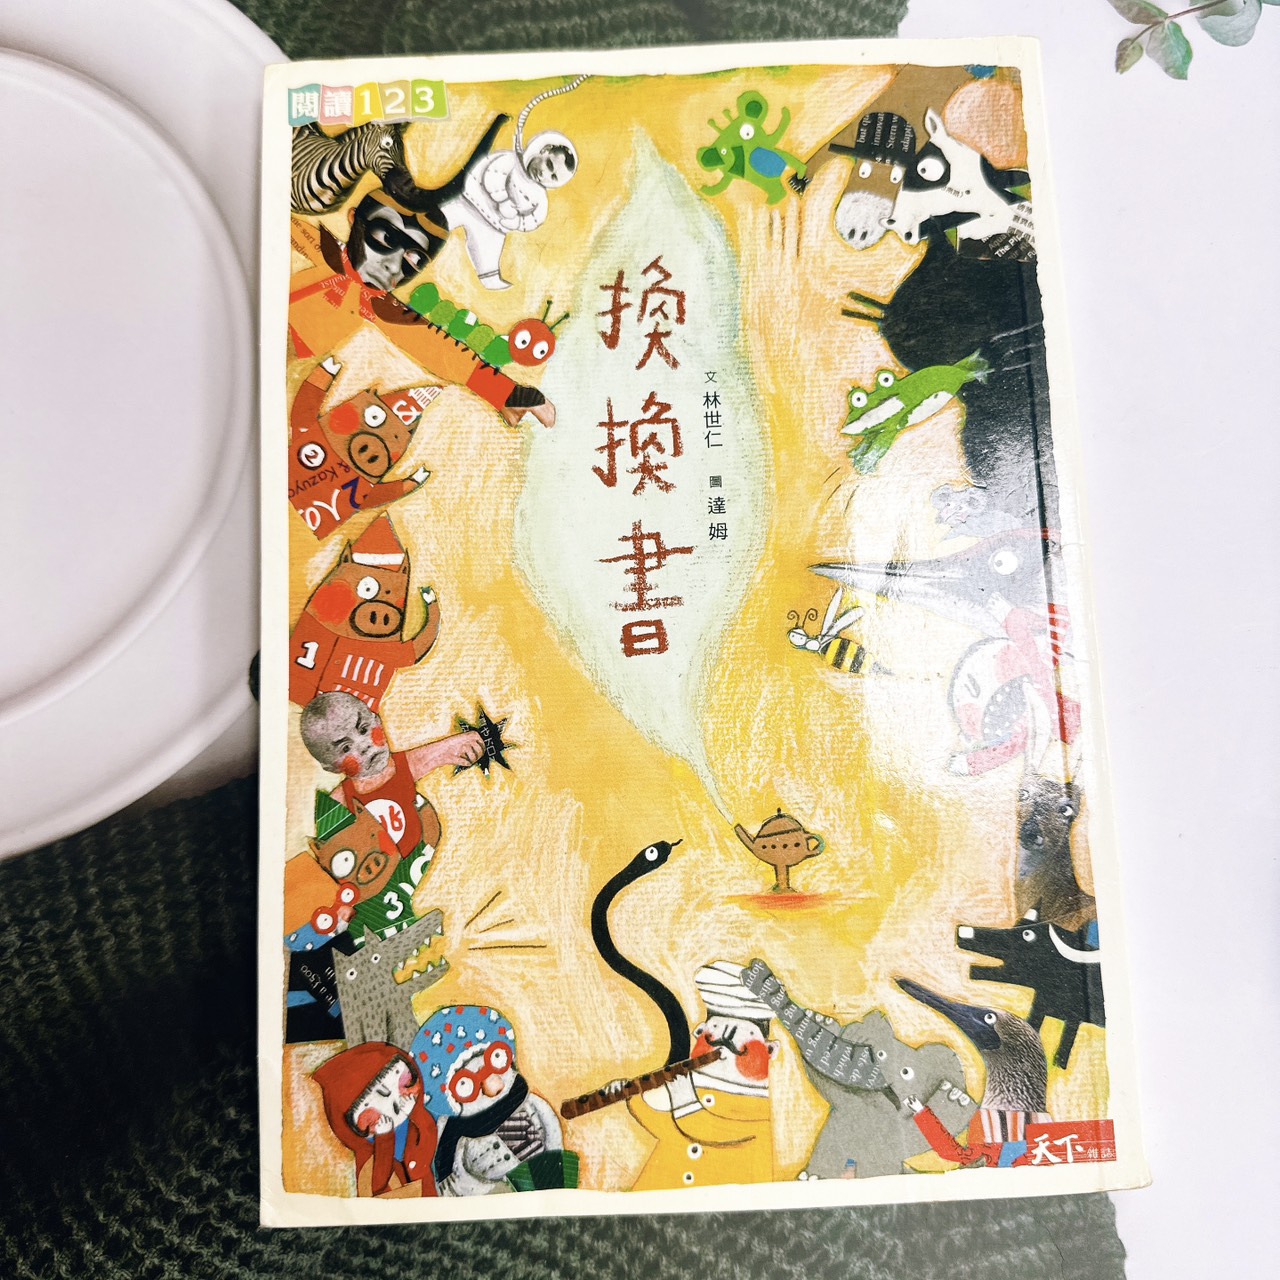 閱讀123
換換書
文 林世仁
圖 達姆
2
1
3
天下雜誌